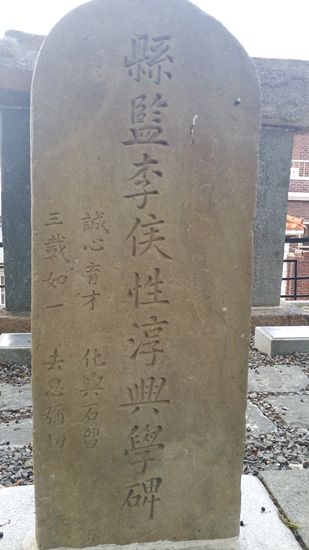 縣監李侯性淳興學碑
誠心育才 化與石
三載如一 去思彌切